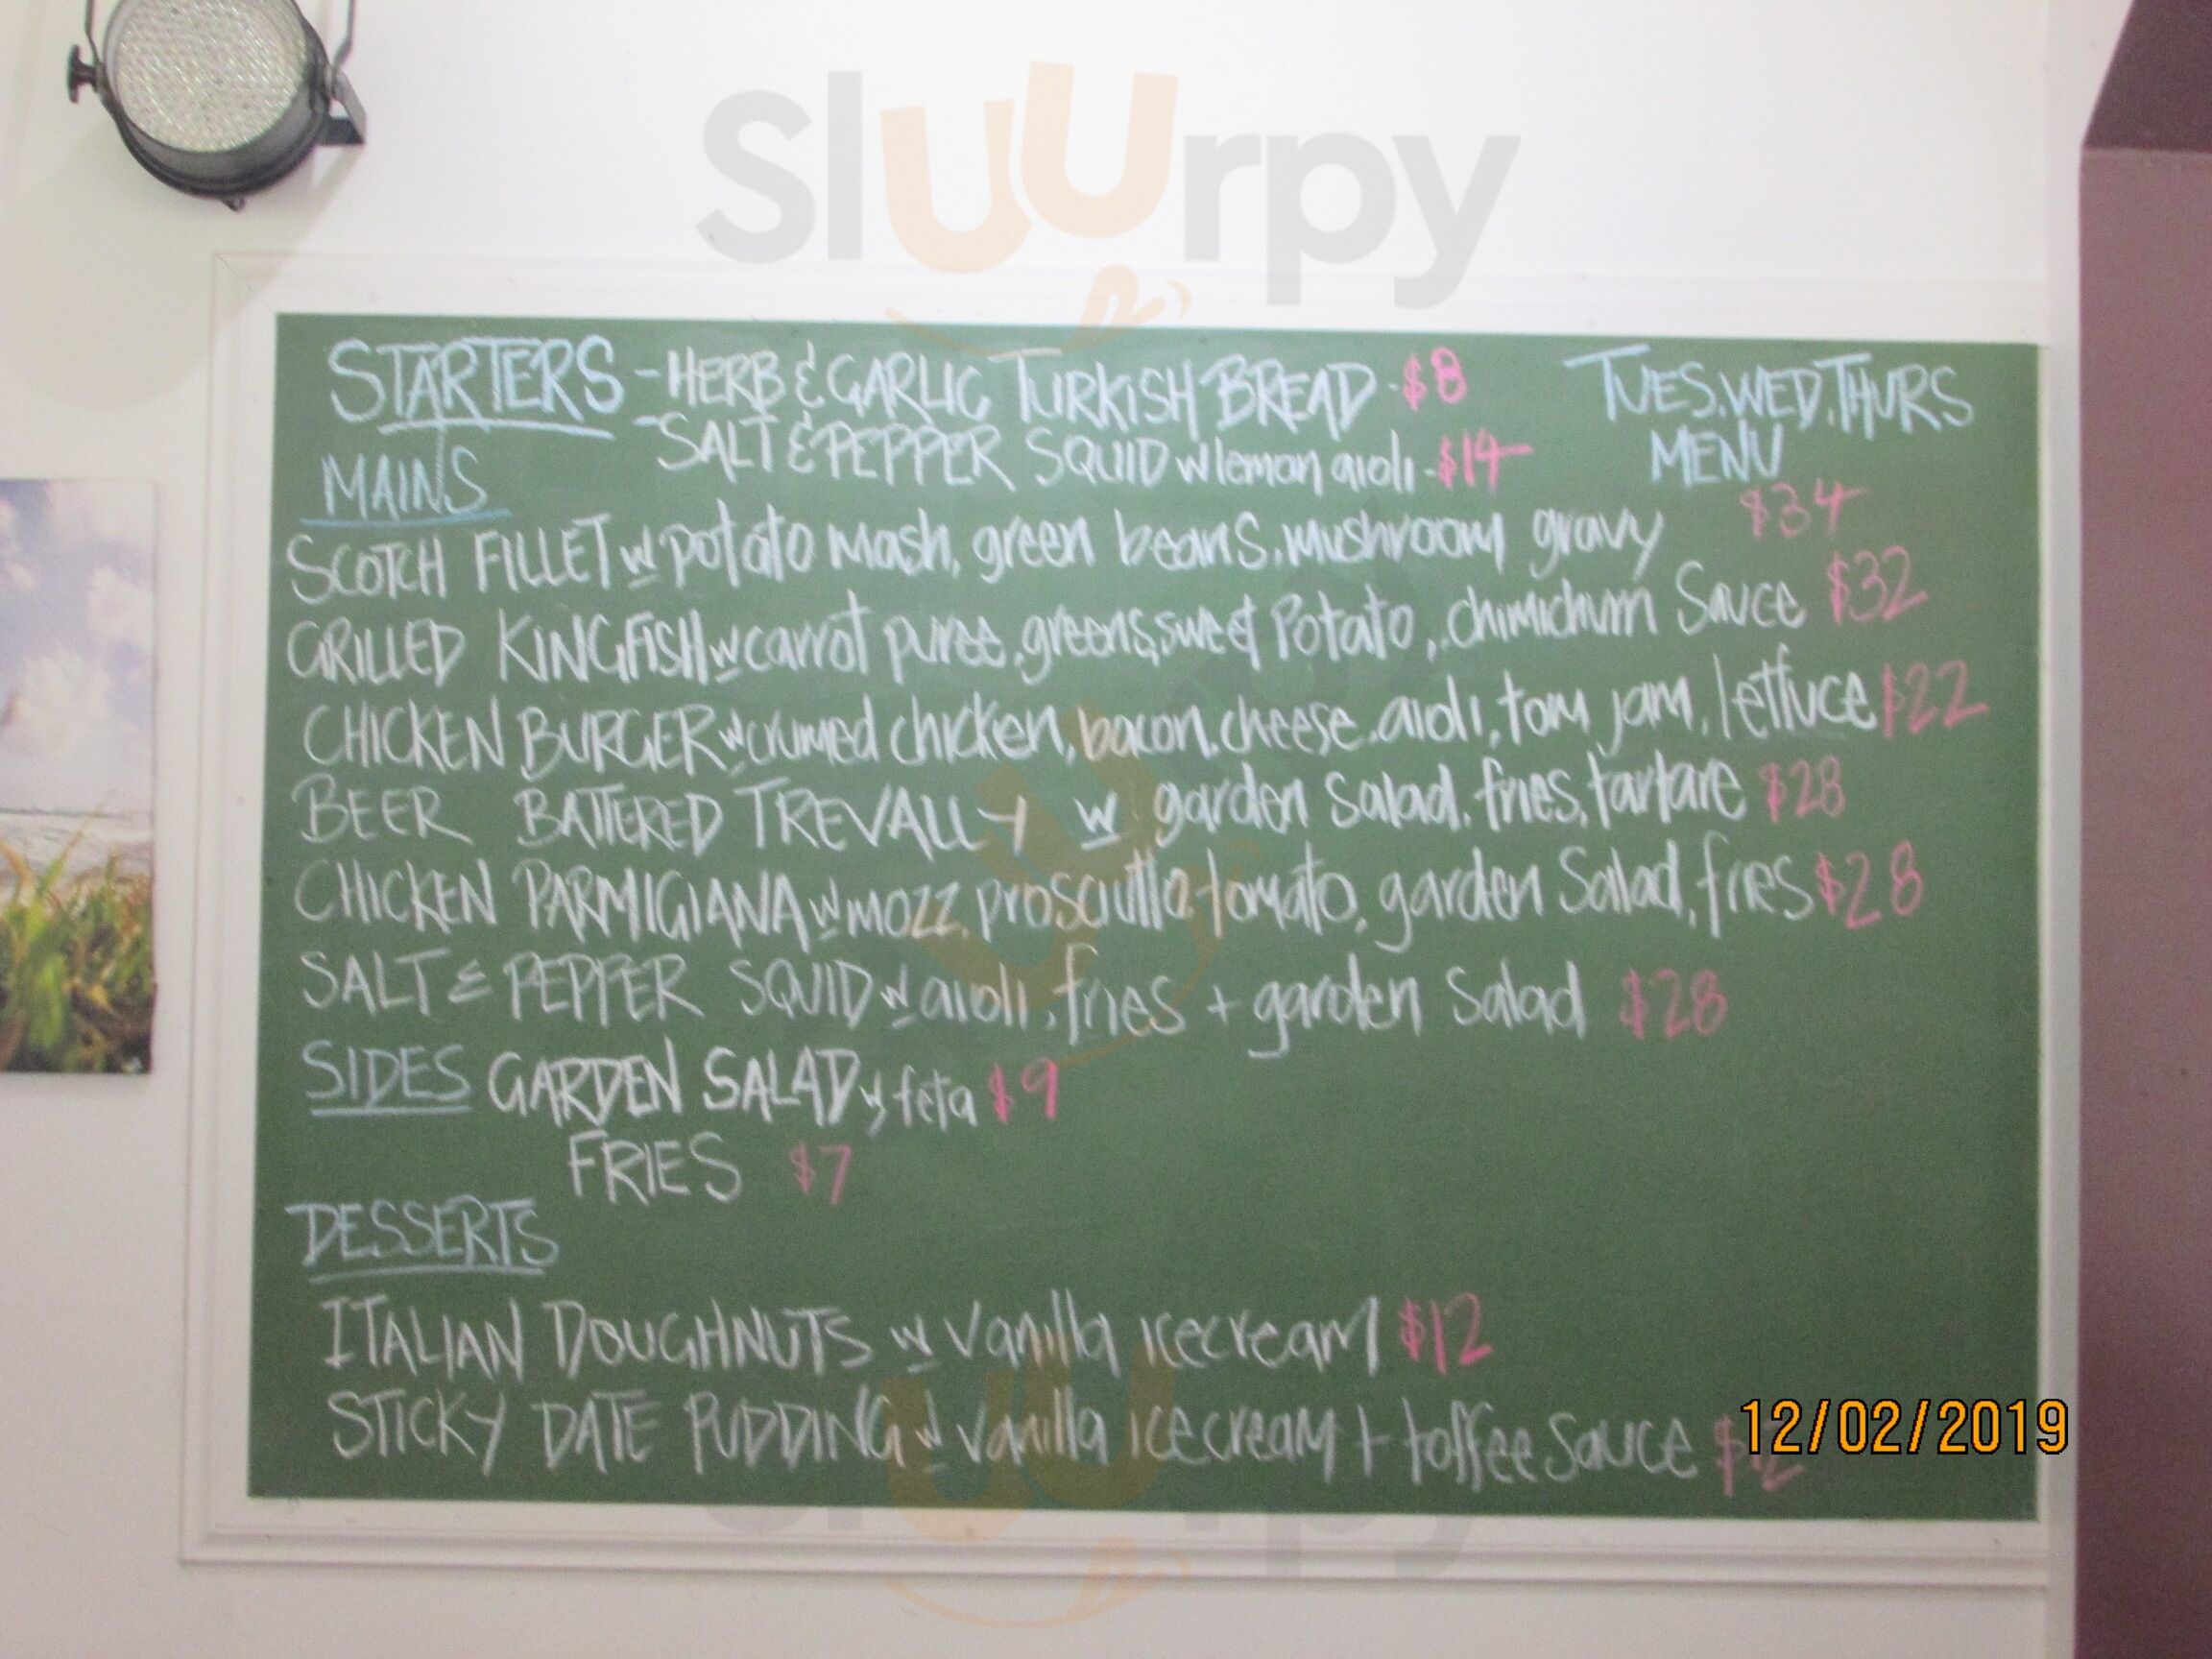 Sluurpy
STARTERS - HERB & GARLIC TURKISH BREAD - $8
- SALT & PEPPER SQUID w lemon aioli - $14
TUES. WED. THURS
MENU
MAINS
SCOTCH FILLET w potato mash, green beans, mushroom gravy $34
GRILLED KINGFISH w carrot puree, greens, sweet Potato, chimichurri Sauce $32
CHICKEN BURGER w crumed chicken, bacon, cheese, aioli, tom jam, lettuce $22
BEER BATTERED TREVALLY w garden Salad, fries, tartare $28
CHICKEN PARMIGIANA w mozz, prosciutto, tomato, garden Salad, fries $28
SALT & PEPPER SQUID w aioli, fries + garden Salad $28
SIDES GARDEN SALAD w feta $9
FRIES $7
DESSERTS
ITALIAN DOUGHNUTS w Vanilla icecream $12
STICKY DATE PUDDING w Vanilla icecream + toffee Sauce $12
12/02/2019
Sluurpy